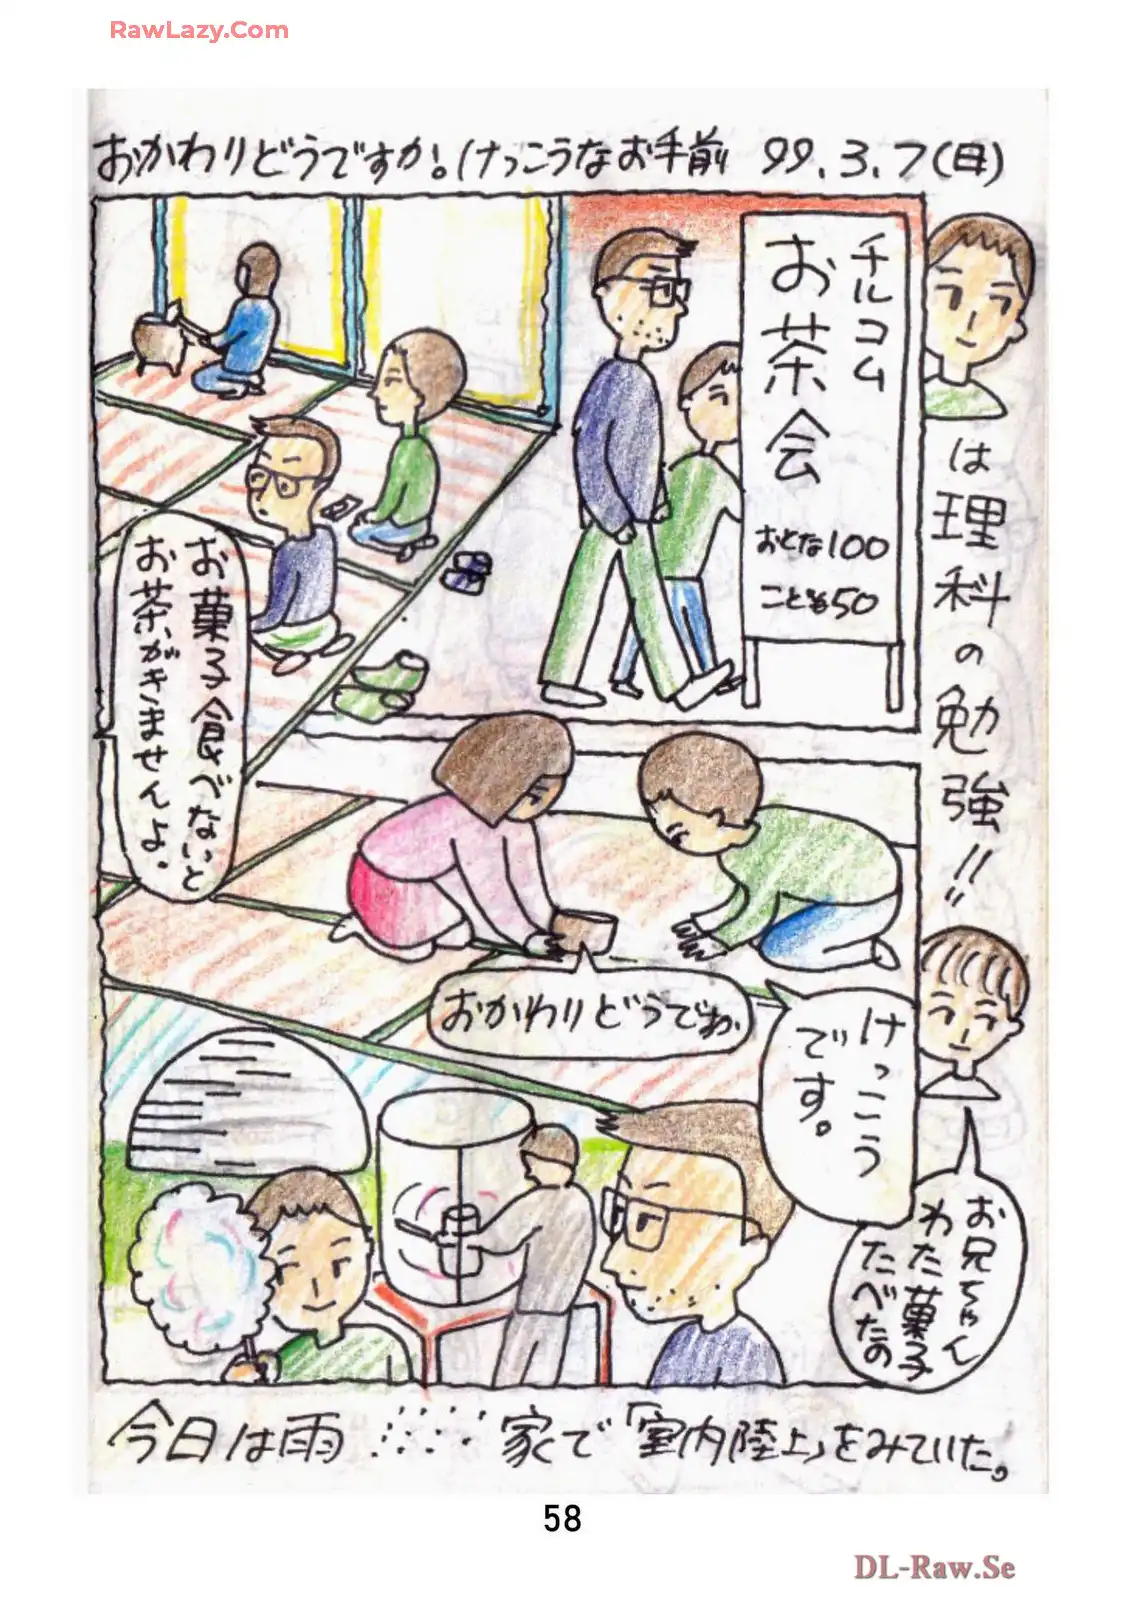 RawLazy.Com
おかわりどうですか。けっこうなお手前 99.3.7(日)
チルコム
お茶会
おとな100
こども50
は理科の勉強!!
お菓子食べないと
お茶がきませんよ。
おかわりどうでわ
けっこう
です。
お兄ちゃん
わた菓子
たべたの
今日は雨 家で「室内陸上」をみていた。
58
DL-Raw.Se